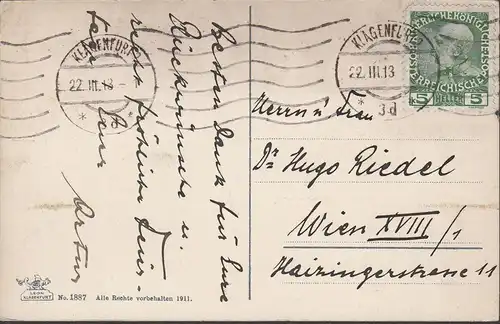 Besten Dank für Eure
Glückwünsche u.
recht fröhliche Feier-
tage Euer
Artur
KLAGENFURT
22.III.13
KLAGENFURT
22.III.13
* 3d
5 HELLER 5
Herrn u Frau
Dr Hugo Riedel
Wien XVIII/1
Haizingerstrasse 11
LEON
KLAGENFURT
No. 1887 Alle Rechte vorbehalten 1911.